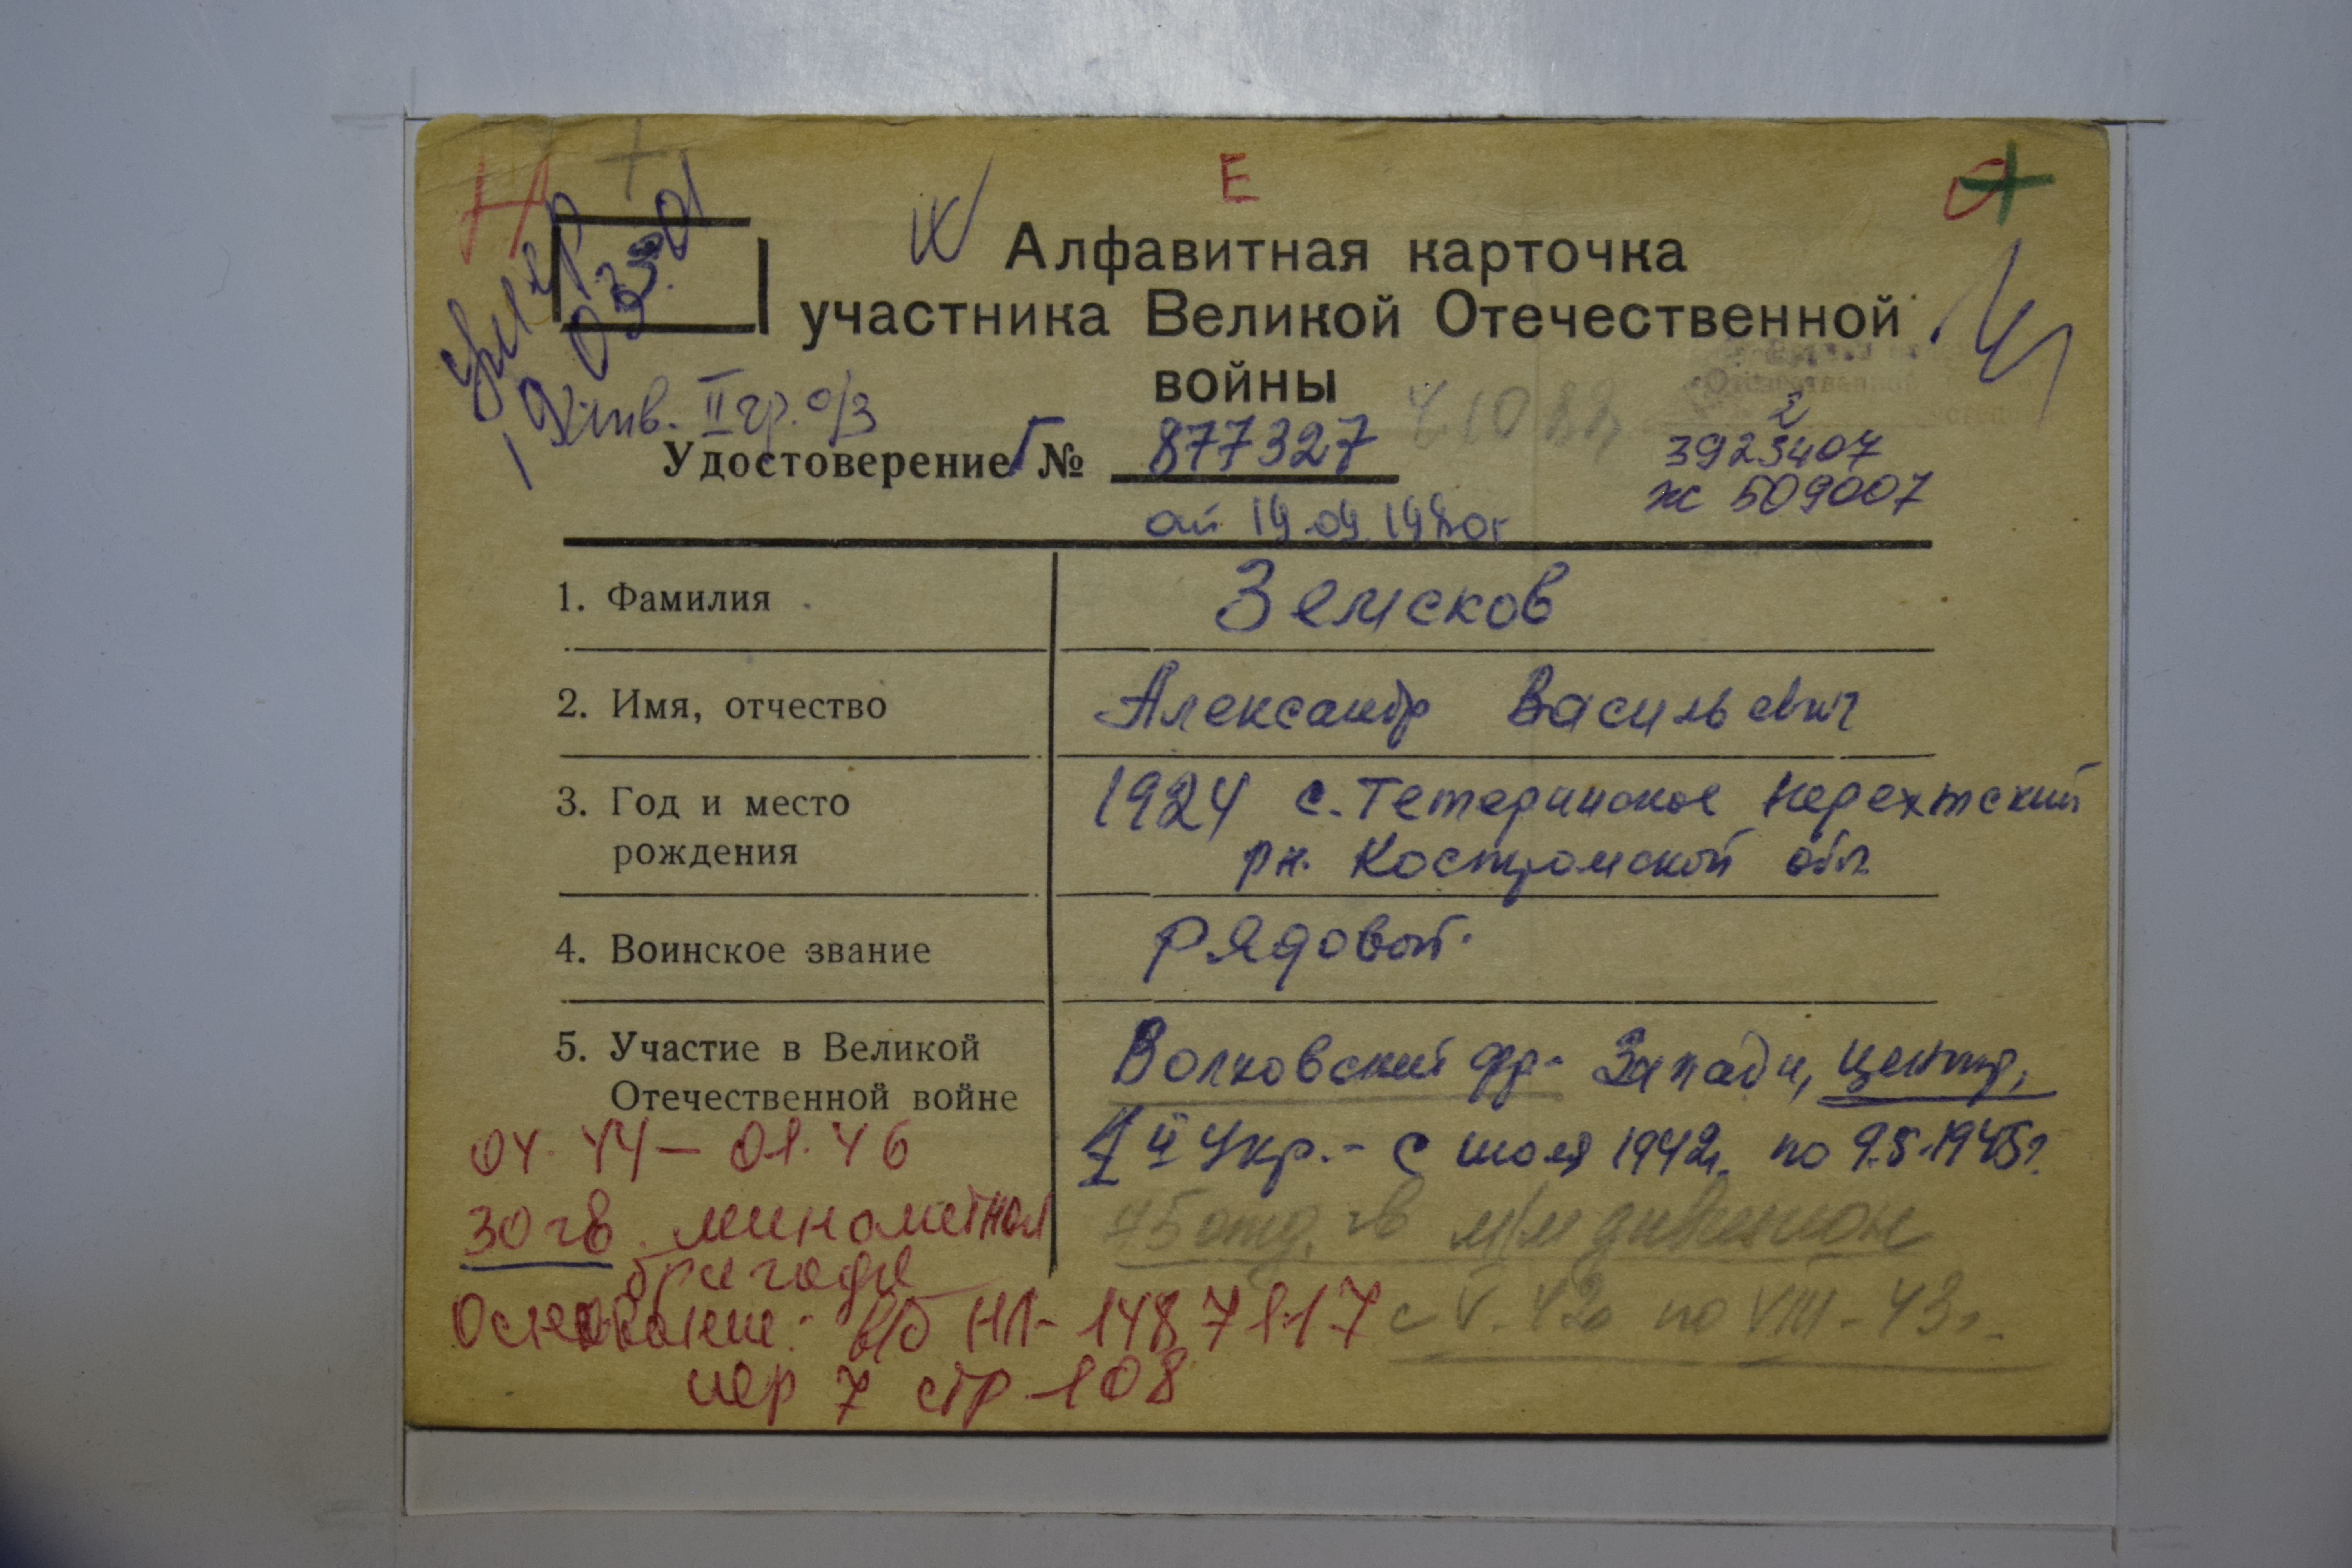 Е
умер
03.01
Алфавитная карточка
участника Великой Отечественной
войны
Инв. II гр. о/з
Удостоверение Г № 877327
3923407
2
ж 509007
от 19.09.1980г
1. Фамилия Земсков
2. Имя, отчество Александр Васильевич
3. Год и место рождения 1924 с. Тетеринское Нерехтский
рн. Костромской обл.
4. Воинское звание Рядовой.
5. Участие в Великой Отечественной войне Волховский фр- Западн, центр,
1й Укр. - с июля 1942г. по 9.5.1945г.
04.44 - 01.46
45 отд. гв м/м дивизион
с V-42г по VIII-43г.
30 гв. минометная
бригада
Основание: в/б НЛ-1487117
пер 7 стр 108